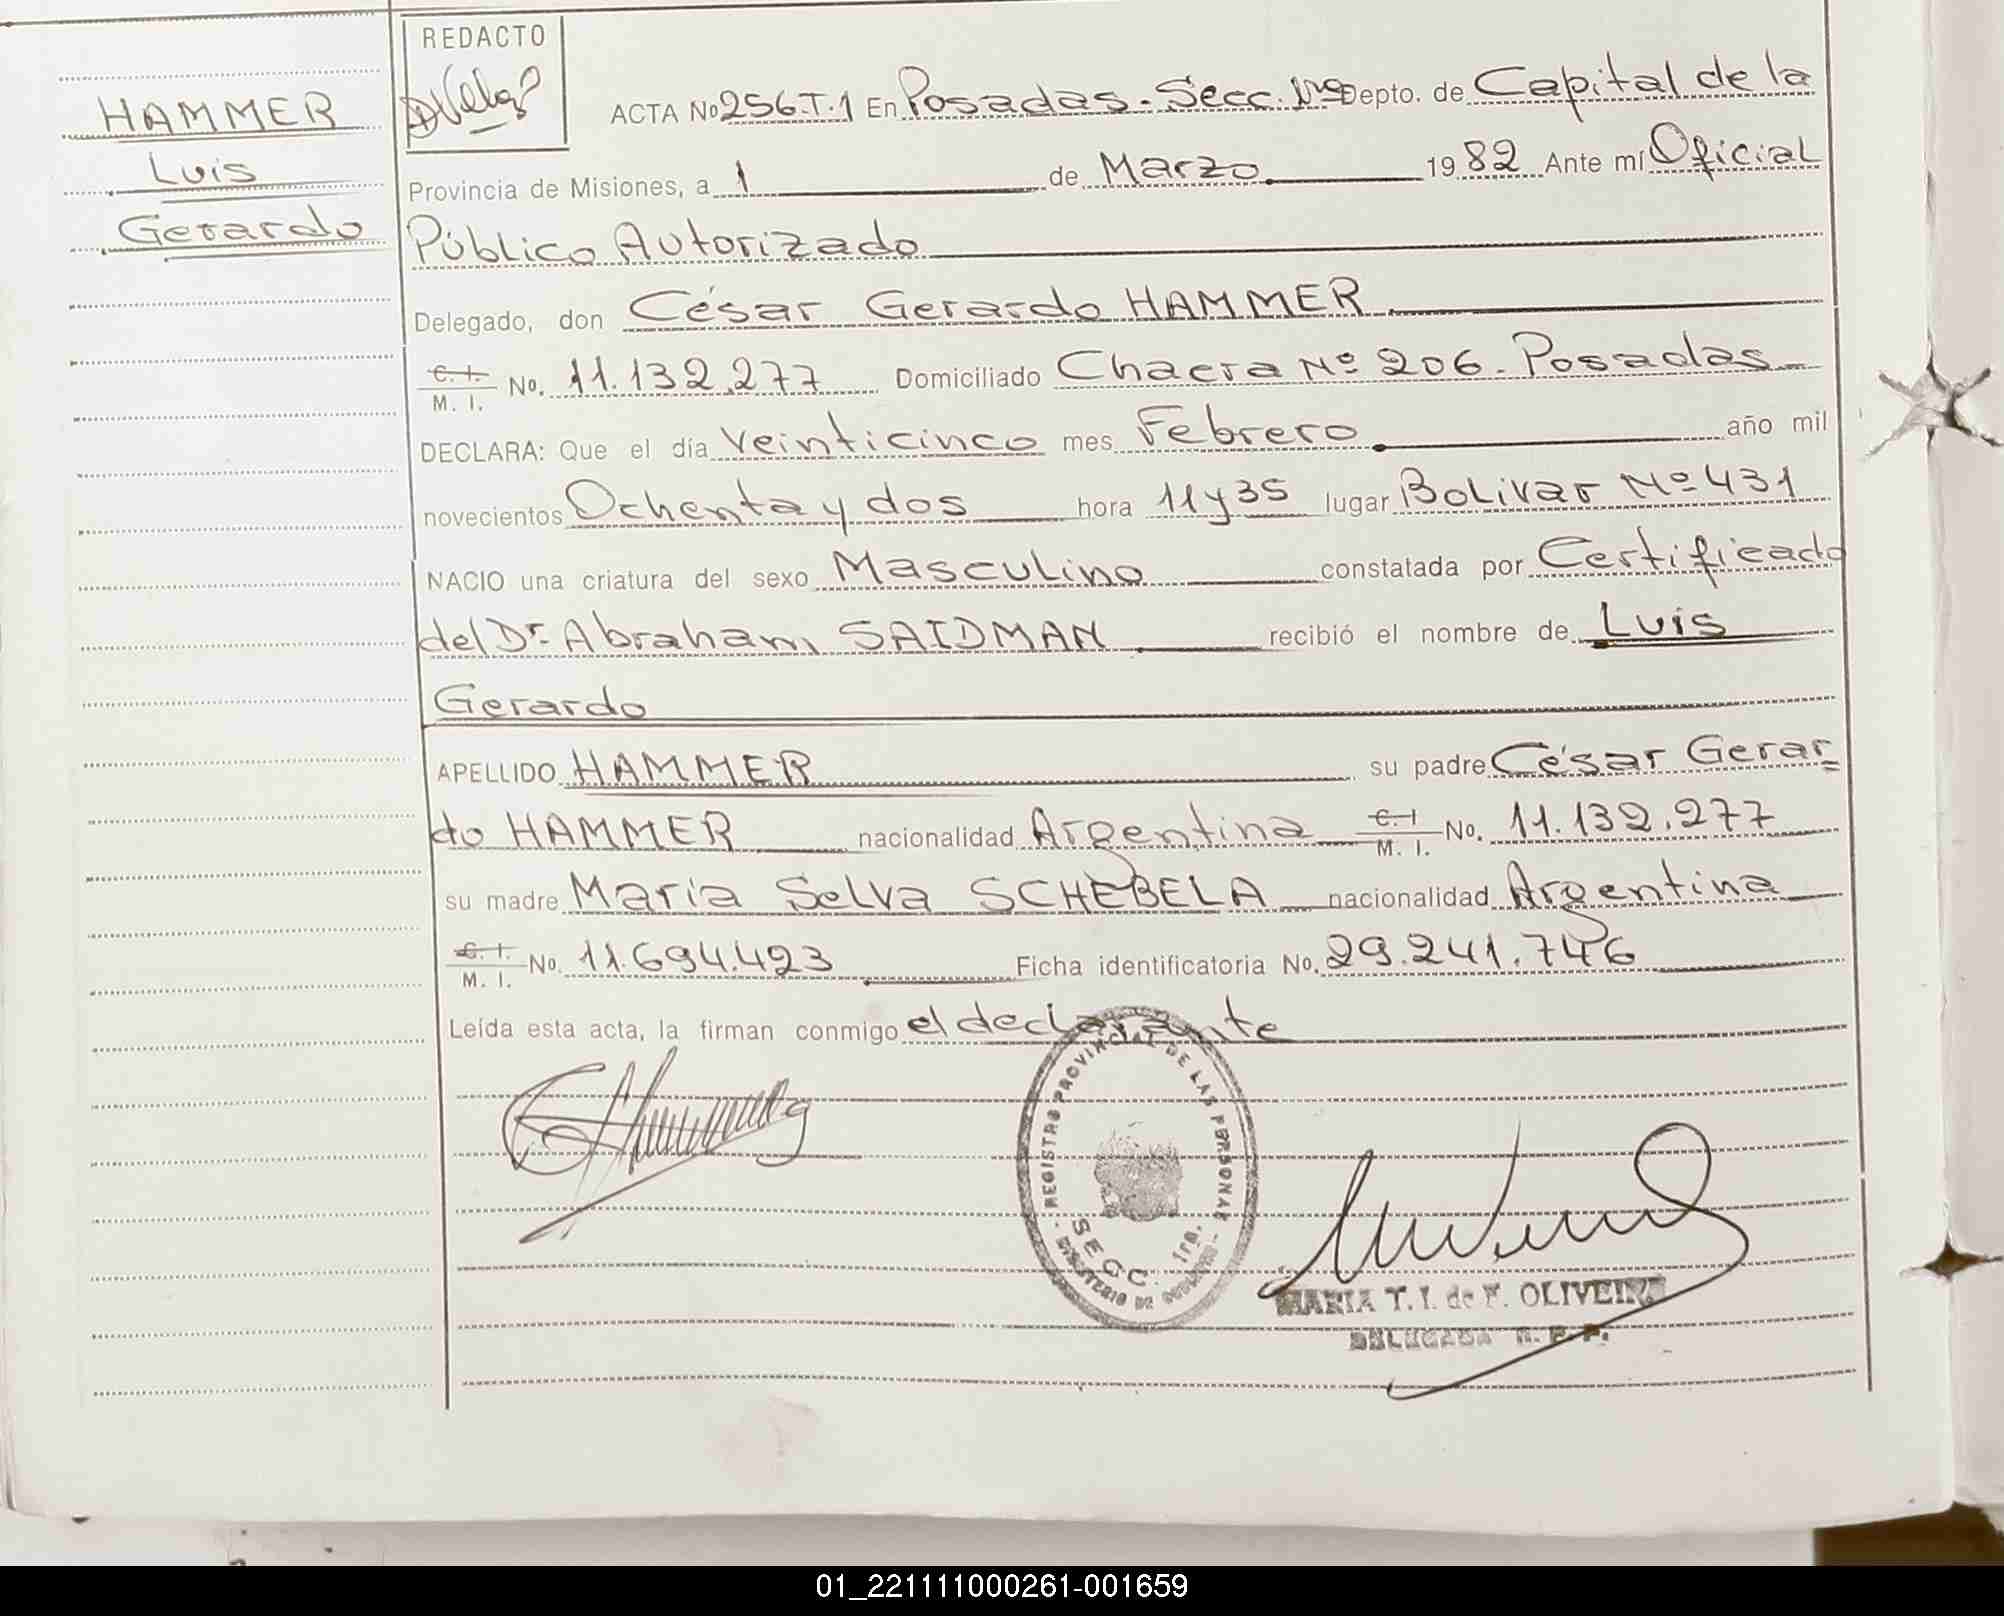 HAMMER
Luis
Gerardo
REDACTO
ACTA No 256.T.1 En Posadas-Secc. 1ra Depto. de Capital de la
Provincia de Misiones, a 1 de Marzo 1982 Ante mí Oficial
Público Autorizado
Delegado, don César Gerardo HAMMER
C. I. M. I. No. 11.132.277 Domiciliado Chacra Nº 206. Posadas
DECLARA: Que el día veinticinco mes Febrero año mil
novecientos Ochenta y dos hora 11 y 35 lugar Bolivar Nº 431
NACIO una criatura del sexo Masculino constatada por Certificado
del Dr. Abraham SAIDMAN recibió el nombre de Luis
Gerardo
APELLIDO HAMMER su padre César Gerar=
do HAMMER nacionalidad Argentina C. I M. I. No. 11.132.277
su madre María Selva SCHEBELA nacionalidad Argentina
C. I. M. I. No. 11.694.423 Ficha identificatoria No. 29.241.746
Leída esta acta, la firman conmigo el declarante
REGISTRO PROVINCIAL DE LAS PERSONAS
SECC. 1ra.
MINISTERIO DE GOBIERNO
MARIA T. I. de F. OLIVEIRA
DELEGADA R. P. P.
01_221111000261-001659